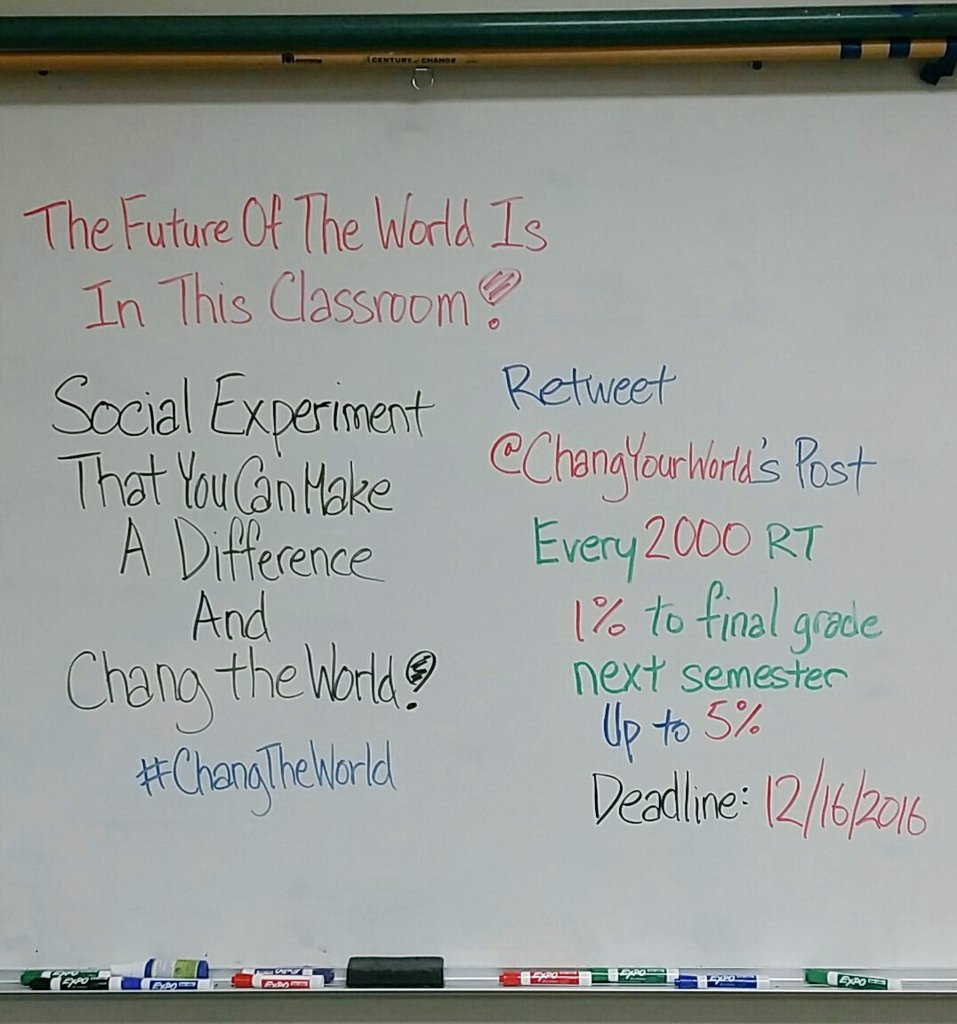 CENTURY OF CHANGE
The Future Of The World Is
In This Classroom!
Social Experiment
That You Can Make
A Difference
And
Chang the World!
#ChangTheWorld
Retweet
@ChangYourWorld's Post
Every 2000 RT
1% to final grade
next semester
Up to 5%
Deadline: 12/16/2016
EXPO
EXPO
EXPO
EXPO
EXPO
EXPO
EXPO
EXPO